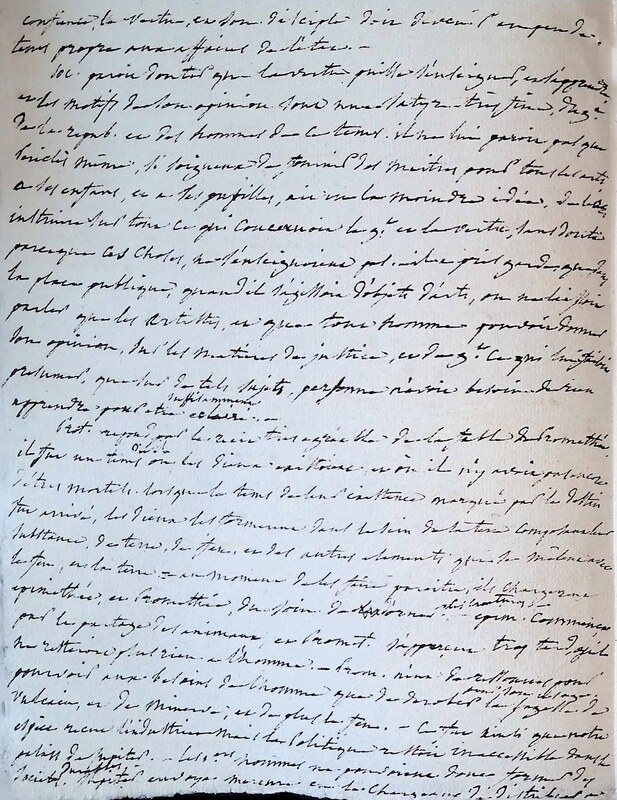 confiance, la vertu, et son disciple doit devenir l'
tems propre aux affaires de l'état. —
Soc. paroit douter que la vertu puisse s'enseigner, et s'apprendre
et les motifs de son opinion sont une satyre très fine, du g.t
de la repub. et des hommes de ce tems. il ne lui paroit pas que
Periclès même, si soigneux de fournir des maitres, pour tous les arts
a ses enfans, et a ses pupilles, ait eu la moindre idée, de les
instruire sur tout ce qui concernoit le g.t et la vertu, sans doute
parceque ces choses, ne s'enseignoient pas.
la place publique, quand il s'agissoit d'objets d'arts, on ne laissoit
parler que les artistes, et que tout homme pouvoit donner
son opinion, sur les matières de justice, et de g.t Ce qui
presumer, que sur de tels sujets, personne n'avoit besoin de rien
apprendre pour être suffisamment éclairé. —
Prot. repond par le recit très agréable de la fable de Promethée
il fut un tems où les Dieux existoient et où il n'y avoit pas encore
d'êtres mortels. lorsque le tems de leur existence marqué par le destin
fut arrivé, les Dieux les formerent dans le sein de la terre composant leur
substance, de terre, de feu, et des autres elements qui se mêlent avec
le feu, et la terre — au moment de les faire paroitre, ils chargerent
epimethée, et Promethée, du soin de orner ces creatures. — epim. commença
par le partage des animaux, et Promet. s'apperçut trop tard qu'il
ne restoit plus rien a l'homme. — Prom. n'eut de ressources pour
pourvoir aux besoins de l'homme que de derober la sagesse de
vulcain, et de Minerve, et de plus le feu. — Ce fut ainsi que notre
espèce reçut l'industrie mais la Politique restoit inaccessible dans le
palais de Jupiter. — les 1.ers hommes ne pouvoient donc former des
societés durables. Jupiter envoya mercure en le chargeant de distribuer